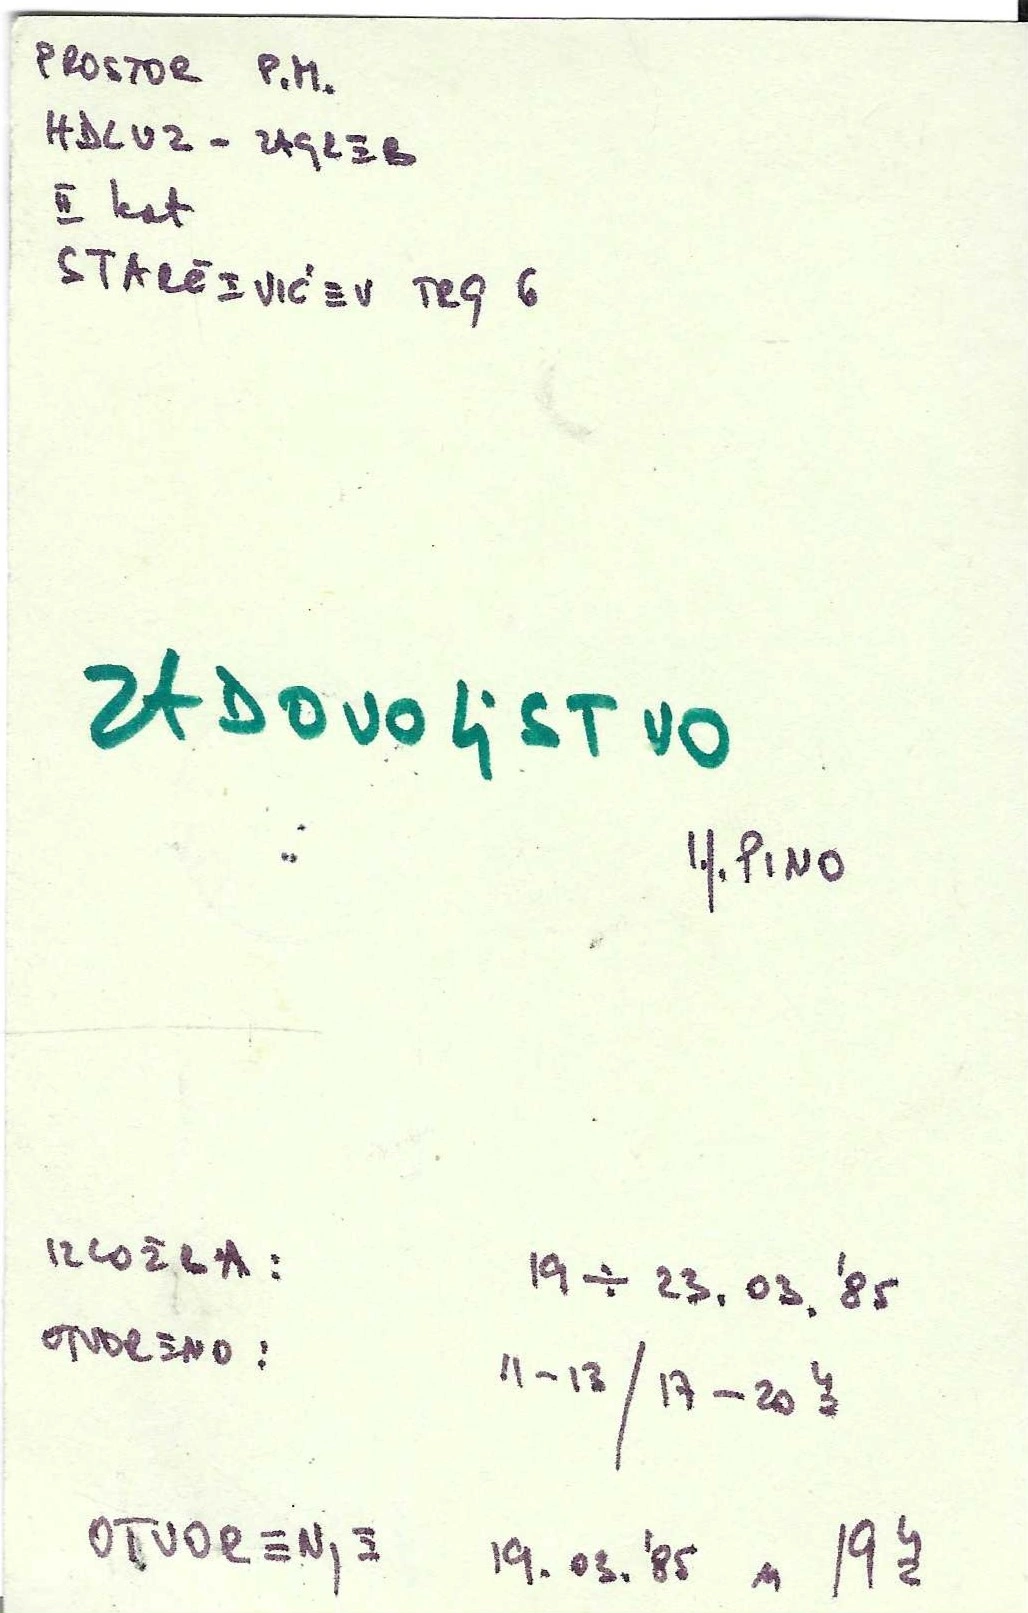 PROSTOR P.M.
HDLUZ - ZAGREB
II kat
STARČEVIĆEV TRG 6
ZADOVOLJSTVO
I.PINO
IZLOŽBA: 19 ÷ 23. 03. '85
OTVORENO: 11-13 / 17-20 h
OTVORENJE 19. 03. '85 u 19 h